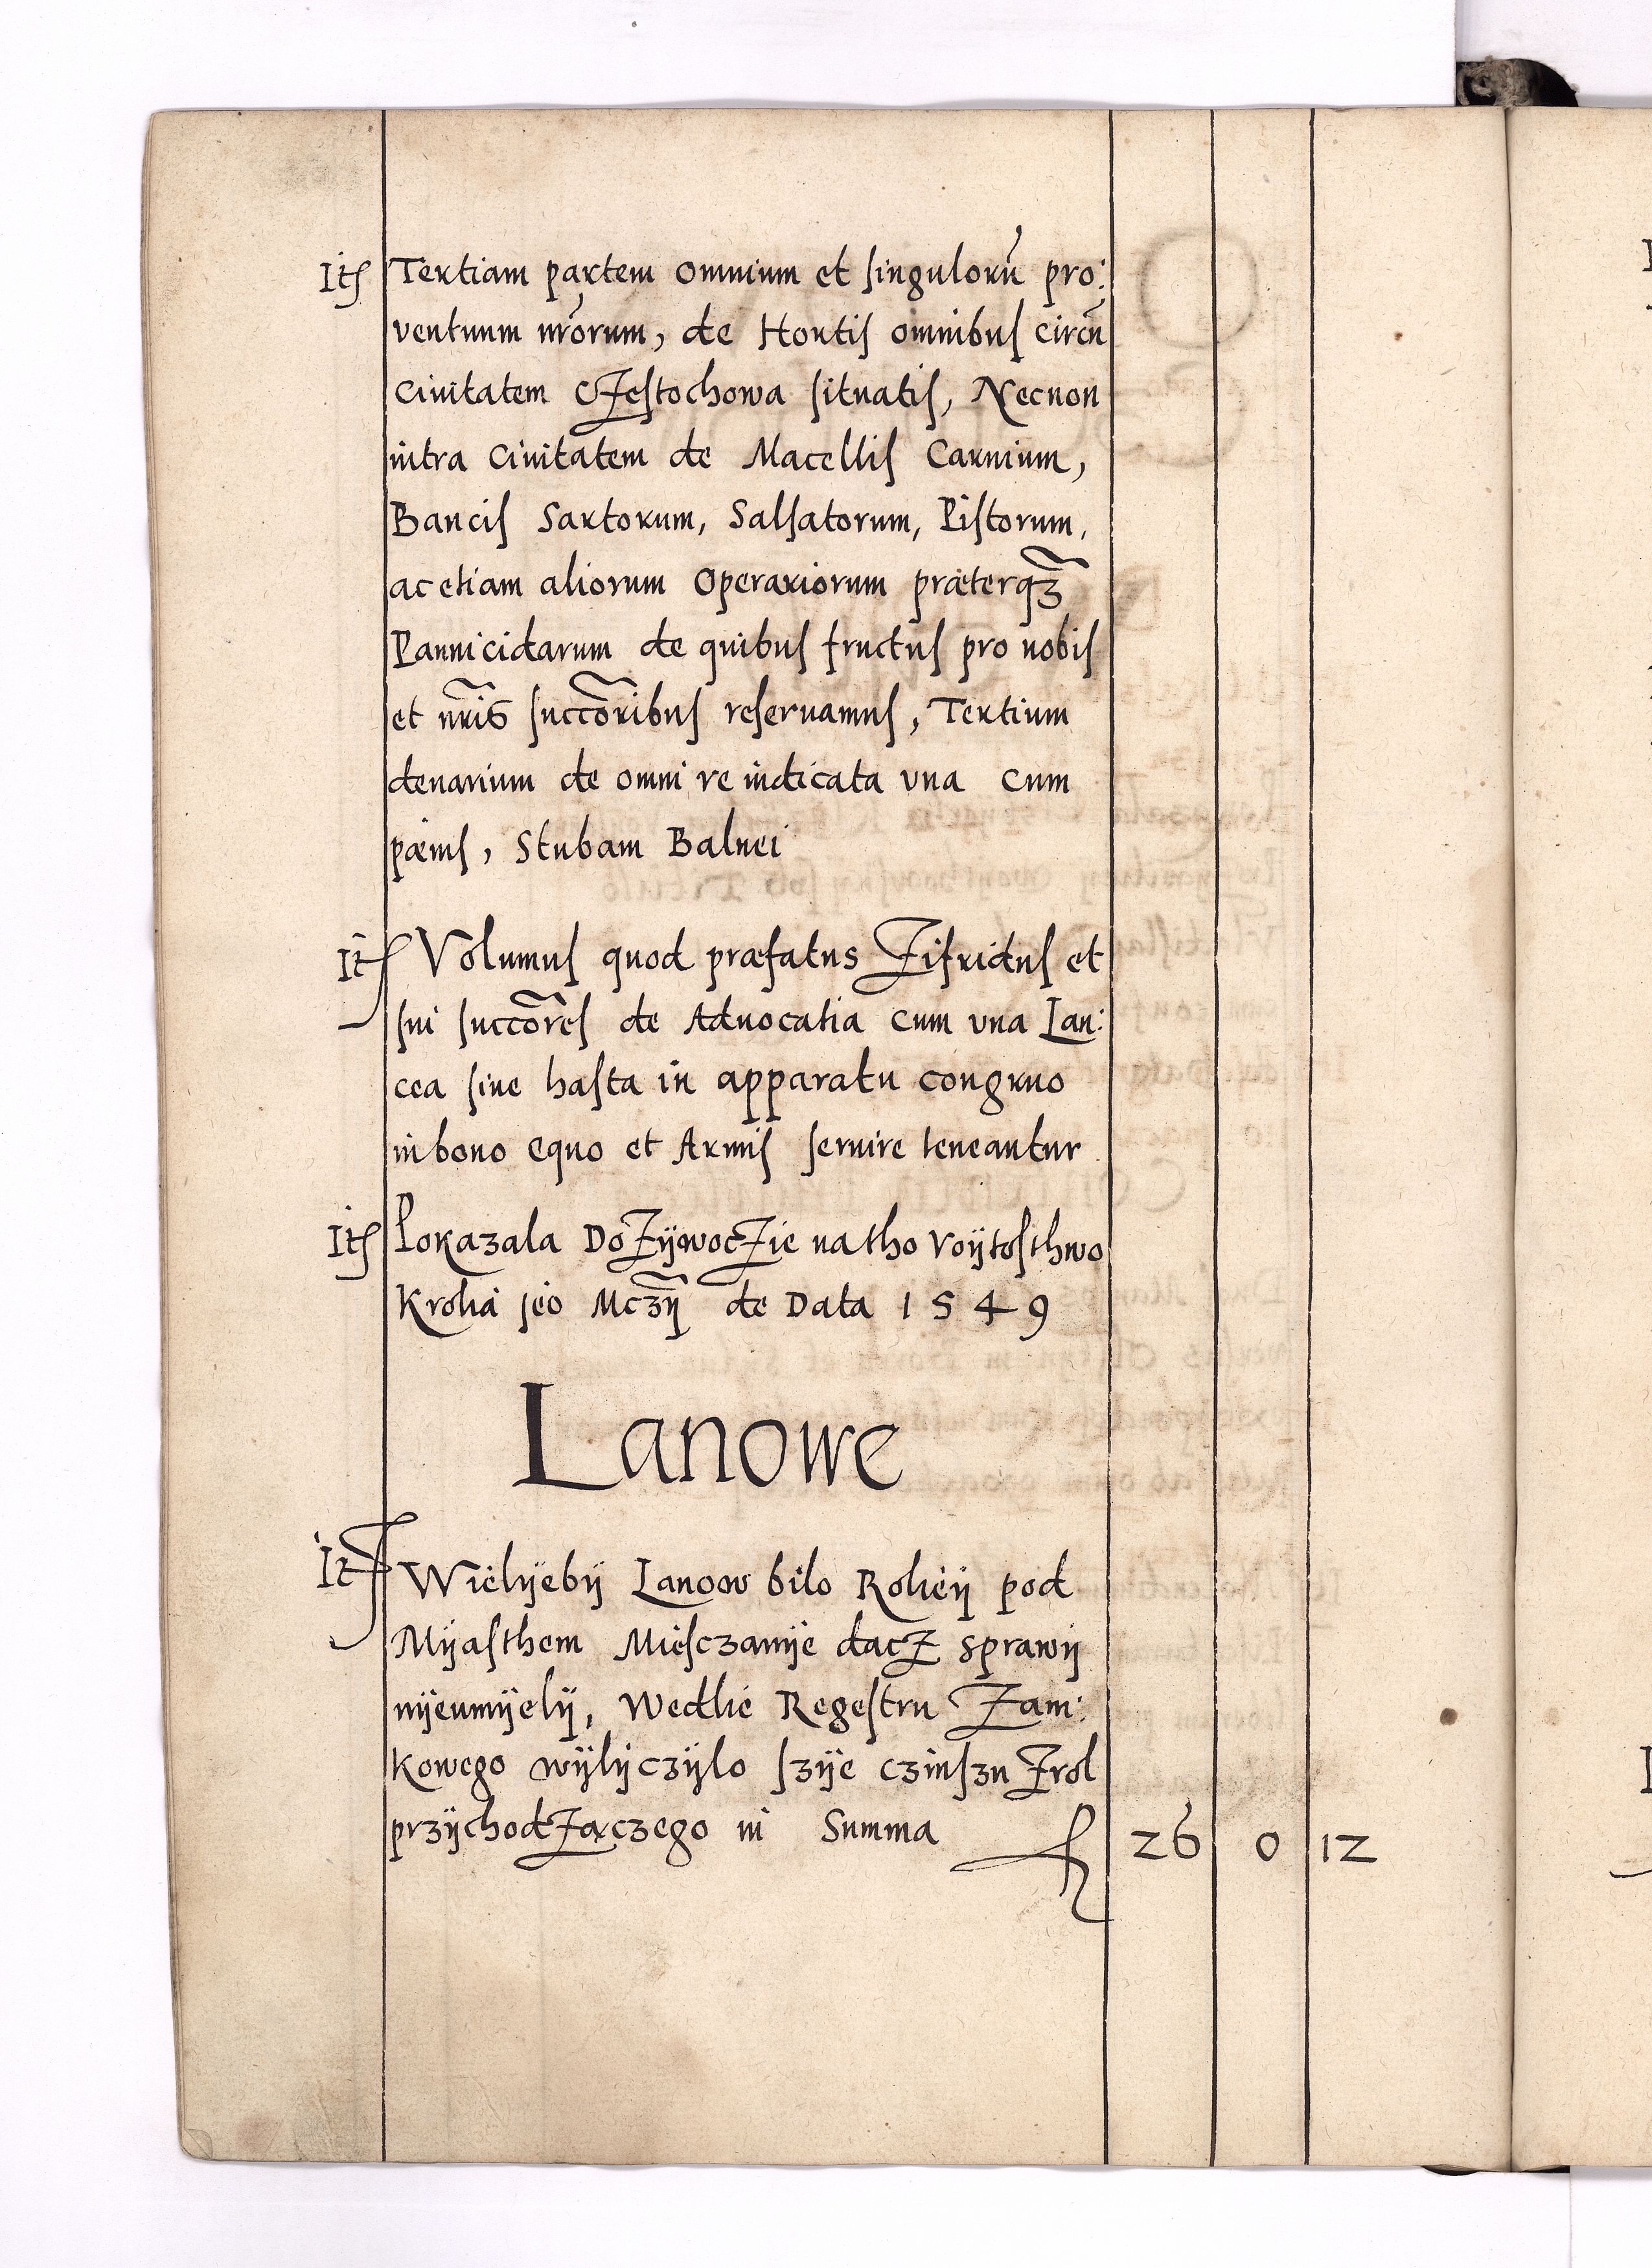 Itē Tertiam partem omnium et singulorū pro:
ventuum nr̄orum, de Hortis omnibus circū
Ciuitatem Czestochowa situatis, Necnon
intra Ciuitatem de Macellis Carnium,
Bancis Sartorum, Salsatorum, Pistorum,
ac etiam aliorum Operariorum præterqʒ̄
Pannicidarum de quibus fructus pro nobis
et nr̄is succōribus reseruamus, Tertium
denarium de omni re iudicata vna cum
pœnis, Stubam Balnei
Itē Volumus quod præfatus Zifridus et
sui succōres de Aduocatia cum vna Lan:
cea siue hasta in apparatu congruo
in bono equo et Armis seruire teneantur
Itē Pokazala Dozÿwoczie na tho Voÿtosthwo
Krolia jeo Mczÿ de Data 1549
Lanowe
Itē Wielÿebÿ Lanow bilo Roliëÿ pod
Mÿasthem Miesczanÿe dacz sprawÿ
nÿeumÿelÿ, Wedlie Regestru Zam:
kowego wÿlÿczÿlo szÿe czinszu Zrol
przÿchodzączego in Summa 26 0 12